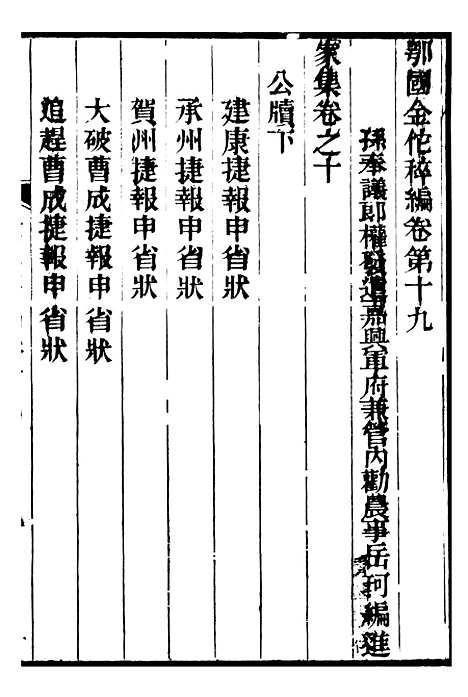 鄂國金佗稡編卷第十九
孫奉議郎權發遣嘉興軍府兼管內勸農事岳珂編進
家集卷之十
公牘下
建康捷報申省狀
承州捷報申省狀
賀州捷報申省狀
大破曹成捷報申省狀
追趕曹成捷報申省狀